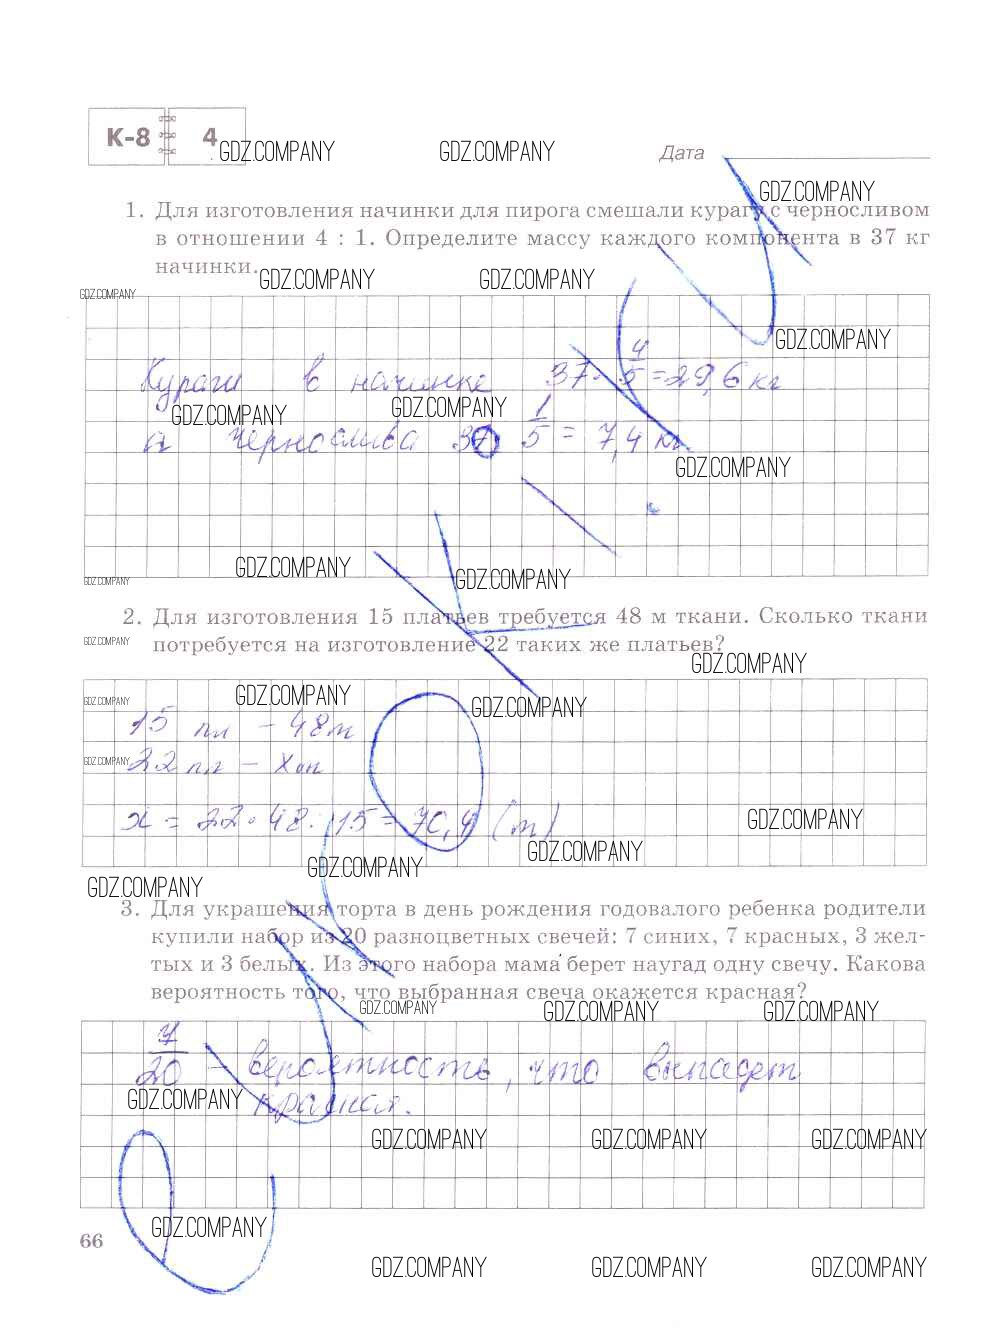 К-8 4
GDZ.COMPANY GDZ.COMPANY Дата
GDZ.COMPANY
1. Для изготовления начинки для пирога смешали курагу с черносливом
в отношении 4 : 1. Определите массу каждого компонента в 37 кг
начинки.
GDZ.COMPANY GDZ.COMPANY
GDZ.COMPANY
GDZ.COMPANY
Кураги в начинке 37 · 4/5 = 29,6 кг
GDZ.COMPANY GDZ.COMPANY
а чернослива 37 · 1/5 = 7,4 кг.
GDZ.COMPANY
GDZ.COMPANY GDZ.COMPANY
GDZ.COMPANY
2. Для изготовления 15 платьев требуется 48 м ткани. Сколько ткани
потребуется на изготовление 22 таких же платьев?
GDZ.COMPANY
GDZ.COMPANY
GDZ.COMPANY GDZ.COMPANY GDZ.COMPANY
15 пл - 48 м
GDZ.COMPANY
22 пл - х
х = 22 · 48 : 15 = 70,4 (м)
GDZ.COMPANY
GDZ.COMPANY
GDZ.COMPANY
GDZ.COMPANY
3. Для украшения торта в день рождения годовалого ребенка родители
купили набор из 20 разноцветных свечей: 7 синих, 7 красных, 3 жел-
тых и 3 белых. Из этого набора мама берет наугад одну свечу. Какова
вероятность того, что выбранная свеча окажется красная?
GDZ.COMPANY GDZ.COMPANY GDZ.COMPANY
7/20 - вероятность, что выпадет
красная.
GDZ.COMPANY
GDZ.COMPANY GDZ.COMPANY GDZ.COMPANY
GDZ.COMPANY
66
GDZ.COMPANY GDZ.COMPANY GDZ.COMPANY